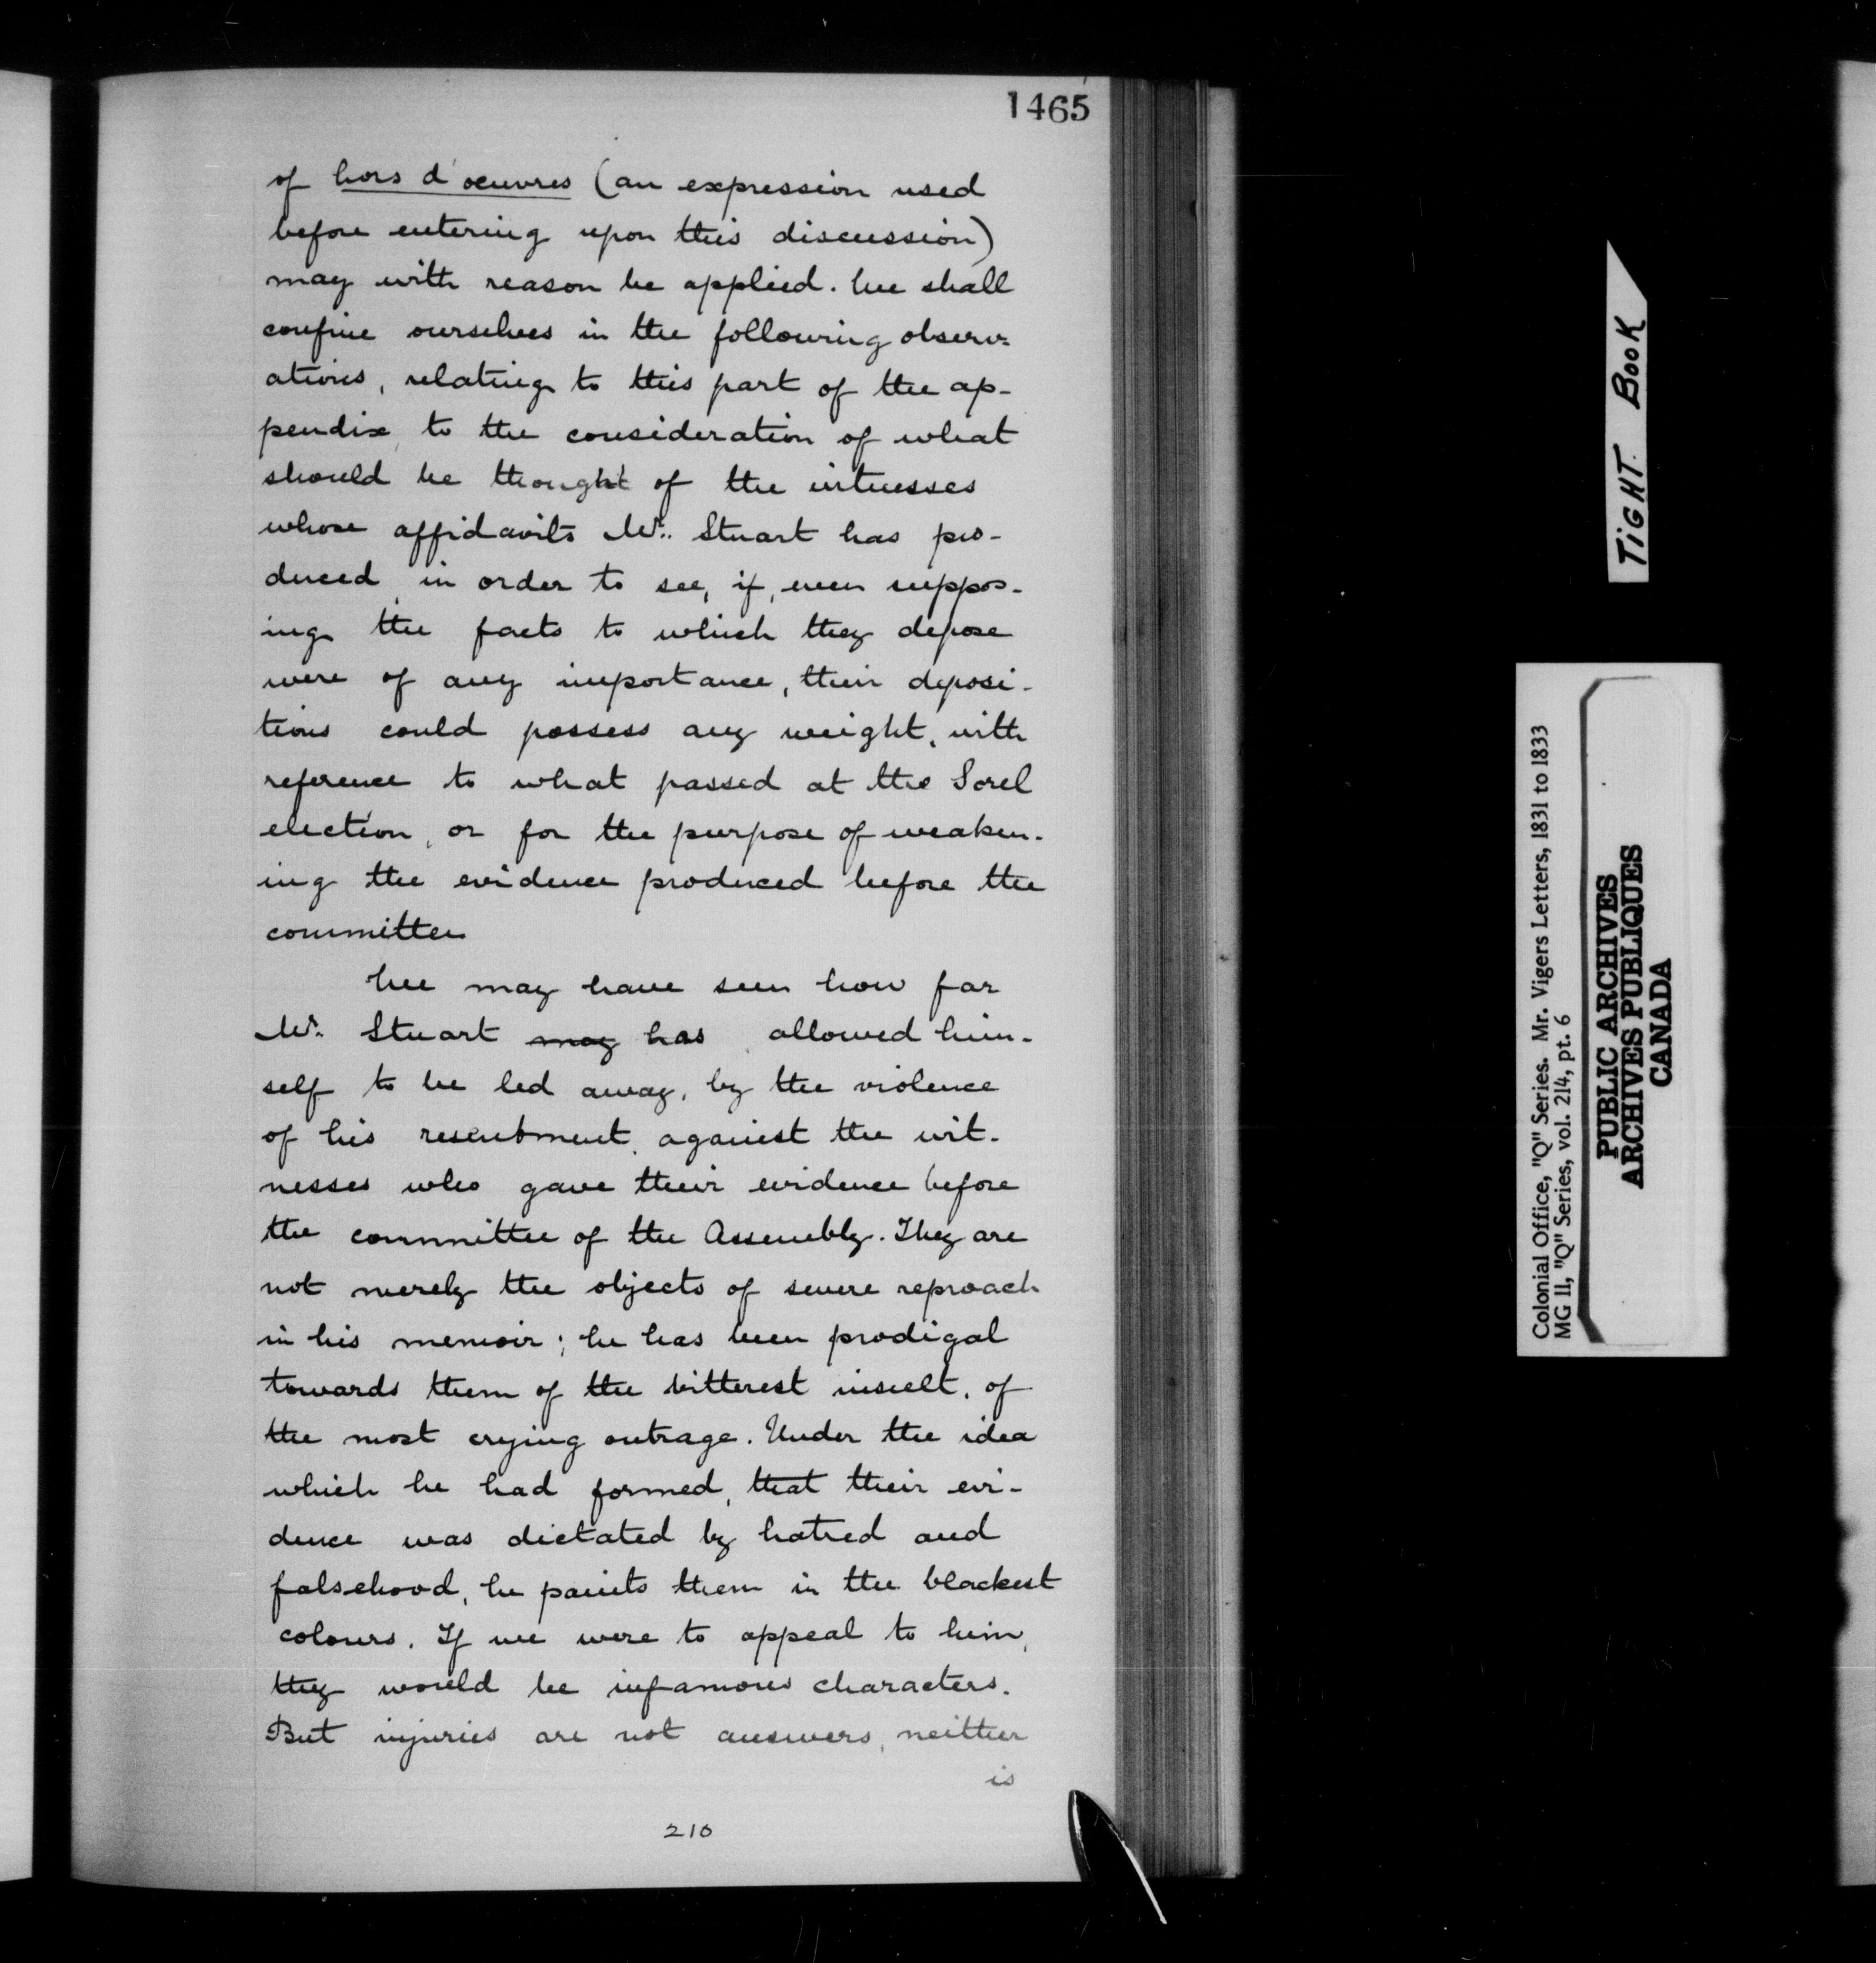 1465
of hors d'oeuvres (an expression used
before entering upon this discussion)
may with reason be applied. We shall
confine ourselves in the following observ-
ations, relating to this part of the ap-
pendix, to the consideration of what
should be thought of the witnesses
whose affidavits Mr. Stuart has pro-
duced in order to see, if, even suppos-
ing the facts to which they depose
were of any importance, their deposi-
tions could possess any weight, with
reference to what passed at the Sorel
election, or for the purpose of weaken-
ing the evidence produced before the
committee
We may have seen how far
Mr. Stuart may has allowed him-
self to be led away, by the violence
of his resentment against the wit-
nesses who gave their evidence before
the committee of the Assembly. They are
not merely the objects of severe reproach
in his memoir; he has been prodigal
towards them of the bitterest insult, of
the most crying outrage. Under the idea
which he had formed, that their evi-
dence was dictated by hatred and
falsehood, he paints them in the blackest
colours. If we were to appeal to him,
they would be infamous characters.
But injuries are not answers, neither
is
210
TIGHT BOOK
Colonial Office, "Q" Series. Mr. Vigers Letters, 1831 to 1833
MG 11, "Q" Series, vol. 214, pt. 6
PUBLIC ARCHIVES
ARCHIVES PUBLIQUES
CANADA